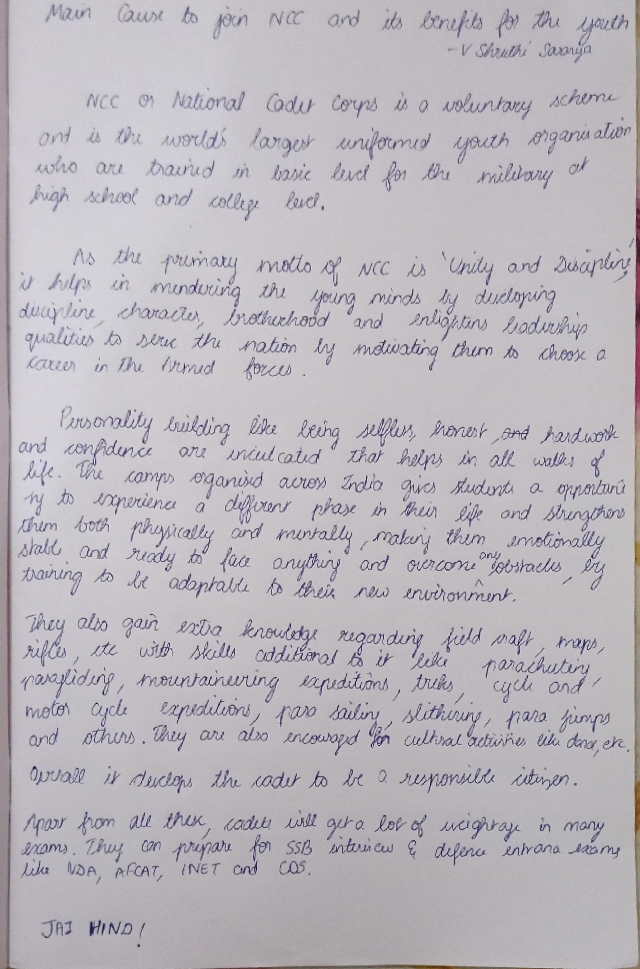 Main Cause to join NCC and its benefits for the youth
- V Shruthi Saranya
NCC or National Cadet Corps is a voluntary scheme
and is the world's largest uniformed youth organisation
who are trained in basic level for the military at
high school and college level.
As the primary motto of NCC is 'Unity and Discipline',
it helps in mendering the young minds by developing
discipline, character, brotherhood and enlightens leadership
qualities to serve the nation by motivating them to choose a
career in the Armed forces.
Personality building like being selfless, honest and hardwork
and confidence are inculcated that helps in all walks of
life. The camps organised across India gives students a opportuni
ty to experience a different phase in their life and strengthens
them both physically and mentally, making them emotionally
stable and ready to face anything and overcome any obstacles, by
training to be adaptable to their new environment.
They also gain extra knowledge regarding field craft, maps,
rifles, etc with skills additional to it like parachuting,
paragliding, mountaineering expeditions, treks, cycle and
motor cycle expeditions, para sailing, slithering, para jumps
and others. They are also encouraged for cultural activities like dance, etc.
Overall it develops the cadet to be a responsible citizen.
Apart from all these, cadets will get a lot of weightage in many
exams. They can prepare for SSB interview & defence entrance exams
like NDA, AFCAT, INET and CDS.
JAI HIND!